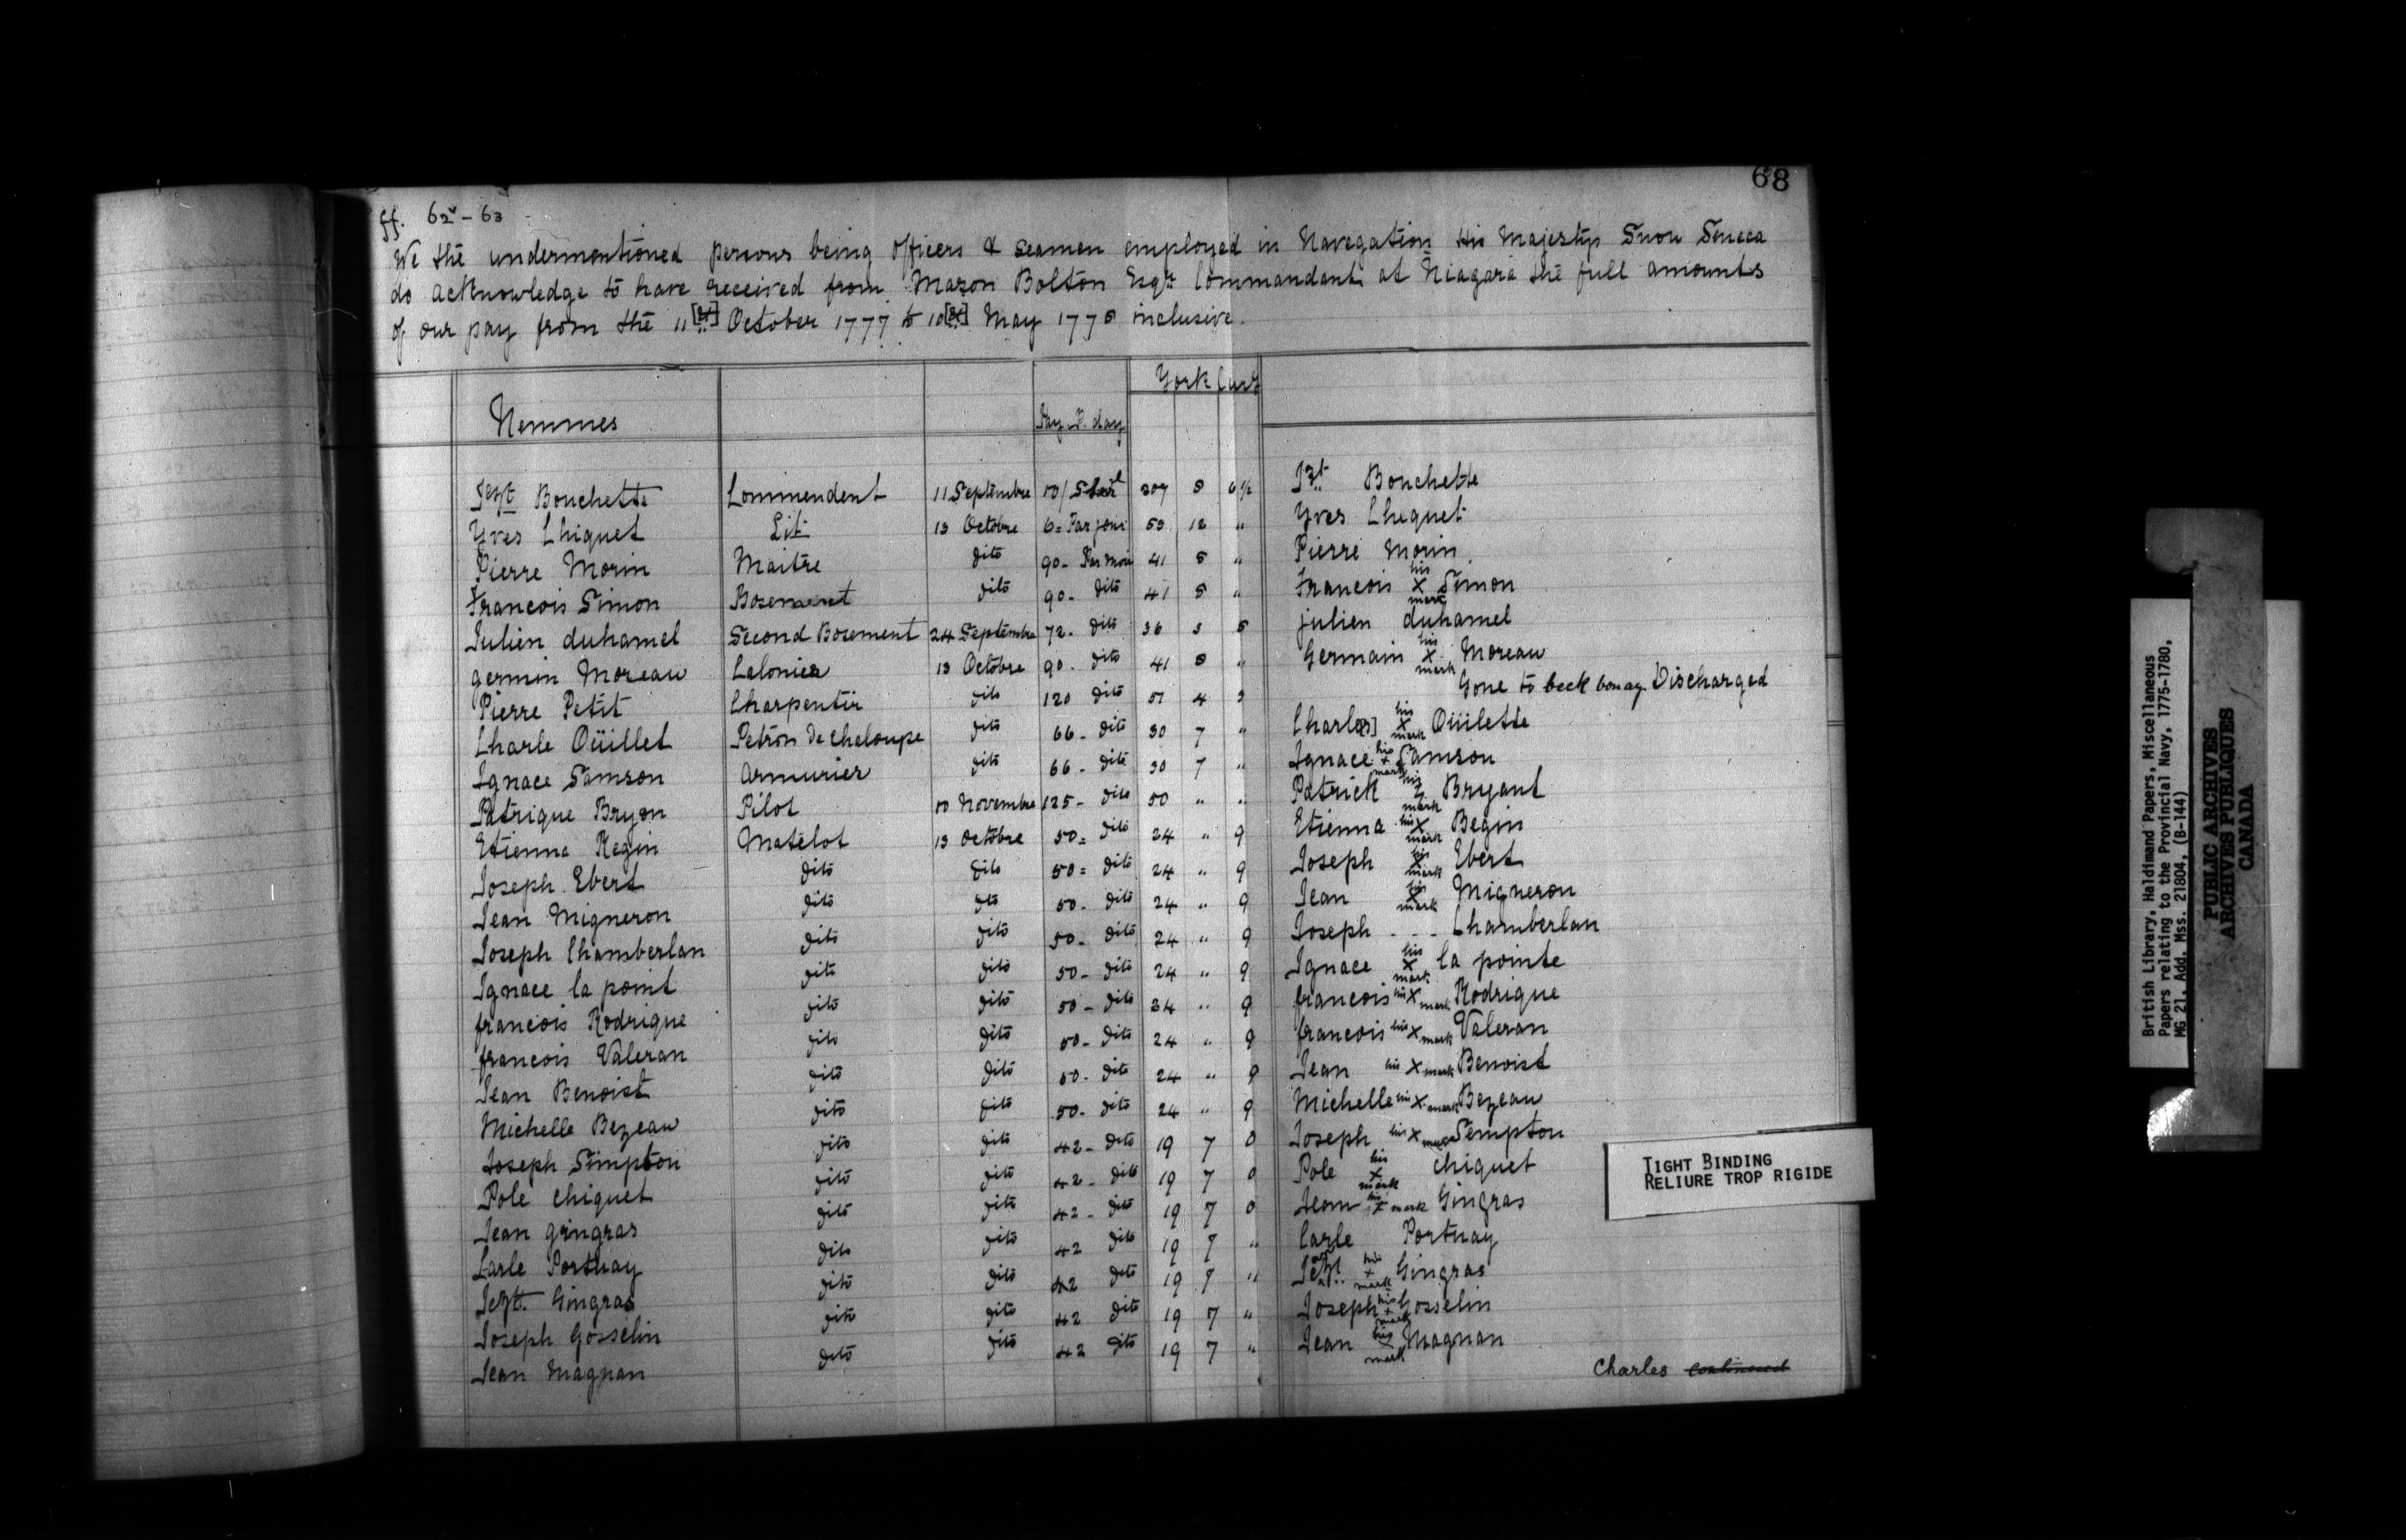 68
ff. 62v - 63
We the undermentioned persons being Officers & Seamen employed in Navegation His Majestys Snow Seneca
do acknowledge to have received from Mazon Bolton Esqr. Commandant at Niagara the full amounts
of our pay from the 11 October 1777 to 10 May 1778 inclusive.
York Curcy
Nommes Pay P. day
Jezt Bouchette Commendent 11 Septembre 10/ Sterl 207 8 6 1/2 Jzt. Bouchette
Yves Chiquet Lit 13 Octobre 6 = Par jour 53 12 " Yves Chequet
Pierre Morin Maitre dito 90 - Par Mois 41 8 " Pierre Morin
Francois Simon Bosement dito 90 - dito 41 8 " Francois his X mark Simon
Julien duhamel Second Bosement 24 Septembre 72 - dito 36 3 5 julien duhamel
germin Moreau Calonier 13 Octobre 90 - dito 41 8 " Germain his X mark Moreau
Pierre Petit Charpentir dito 120 dito 51 4 3 Gone to beck bonay. Discharged
Charle Oüillet Petron de Chaloupe dito 66 - dito 30 7 " Charle[s] his X mark Oüilette
Ignace Samson Armurier dito 66 - dito 30 7 " Ignace his + mark Samson
Patrique Bryon Pilot 10 Novembre 125 - dito 50 " " Patrick his mark Bryant
Etienne Regin Matelot 13 Octobre 50 = dito 24 " 9 Etienne his X mark Begin
Joseph Ebert dito dito 50 = dito 24 " 9 Joseph his X mark Ebert
Jean Migneron dito dto 50 - dito 24 " 9 Jean his X mark Migneron
Joseph Chamberlan dito dito 50 - dito 24 " 9 Joseph - - - Chamberlan
Ignace la point dito dito 50 - dito 24 " 9 Ignace his X mark la pointe
francois Rodrigue dito dito 50 - dito 24 " 9 francois his X mark Rodrigue
francois Valeran dito dito 50 - dito 24 " 9 francois his X mark Valeran
Jean Benoist dito dito 50 - dito 24 " 9 Jean his X mark Benoist
Michelle Bezeau dito dito 50 - dito 24 " 9 Michelle his X mark Bezeau
Joseph Simpton dito dito 42 - dito 19 7 0 Joseph his X mark Sempton
Pole Chiquet dito dito 42 - dito 19 7 0 Pole his X mark Chiquet
Jean gringras dito dito 42 - dito 19 7 0 Jean his + mark Gingras
Carle Portuay dito dito 42 dito 19 7 " Carle Portuay
Jezt. Gingras dito dito 42 dito 19 7 " Jezt. his + mark Gingras
Joseph Gosselin dito dito 42 dito 19 7 " Joseph his + mark Gosselin
Jean Magnan dito dito 42 dito 19 7 " Jean his X mark Magnan
Charles continued
TIGHT BINDING
RELIURE TROP RIGIDE
British Library, Haldimand Papers, Miscellaneous
Papers relating to the Provincial Navy, 1775-1780,
MG 21, Add. Mss. 21804, (B-144)
PUBLIC ARCHIVES
ARCHIVES PUBLIQUES
CANADA